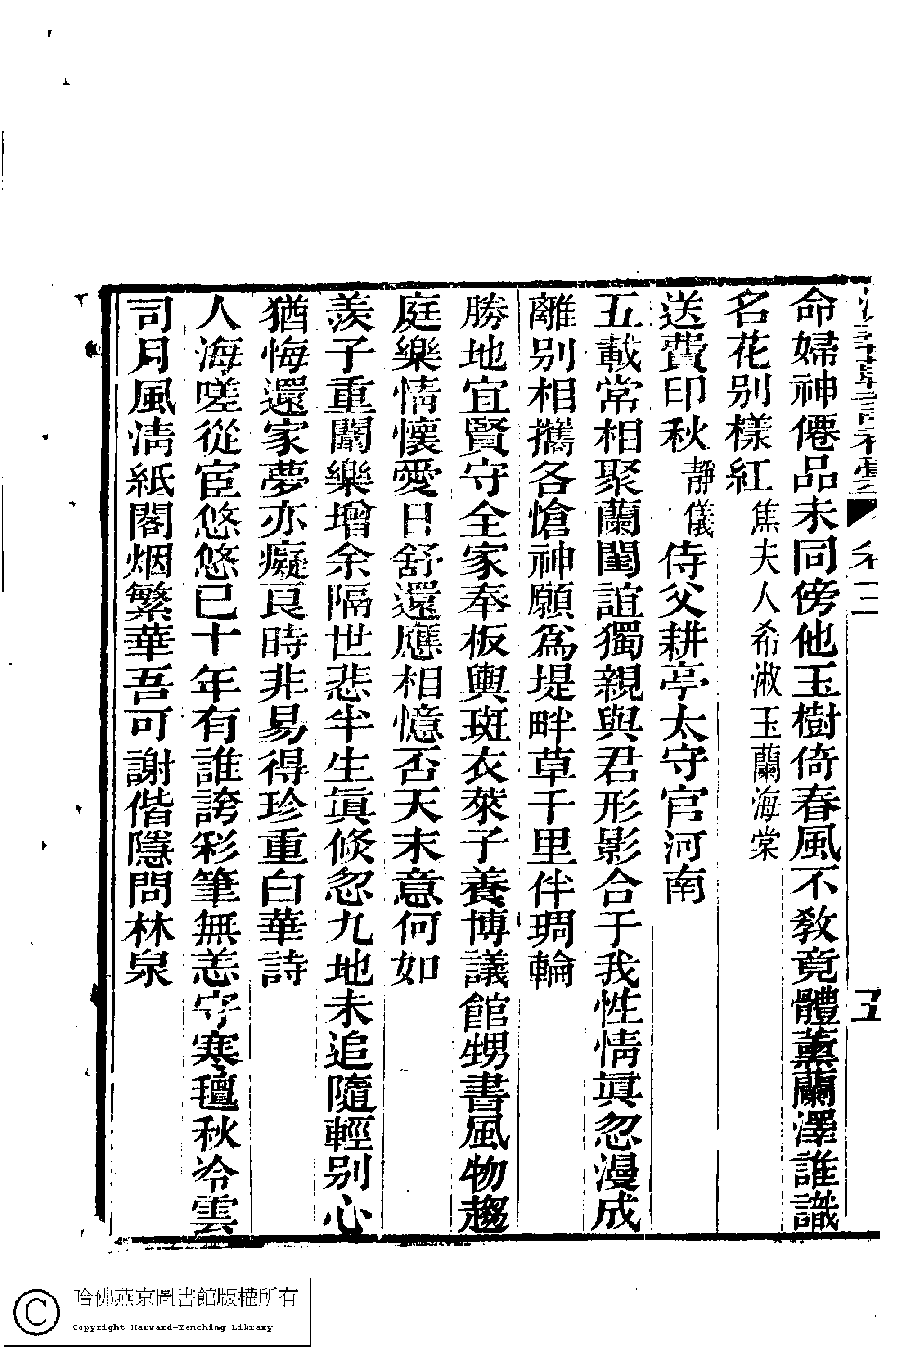 卷二
五
命婦神僊品未同傍他玉樹倚春風不敎竟體薰蘭澤誰識
名花別樣紅焦夫人希淑玉蘭海棠
送費印秋靜儀侍父耕亭太守官河南
五載常相聚蘭閨誼獨親與君形影合于我性情眞忽漫成
離別相攜各愴神願為堤畔草千里伴琱輪
勝地宜賢守全家奉板輿斑衣萊子養博議館甥書風物趨
庭樂情懷愛日舒還應相憶否天末意何如
羨子重闈樂增余隔世悲半生眞倐忽九地未追隨輕別心
猶悔還家夢亦癡艮時非易得珍重白華詩
人海嗟從宦悠悠已十年有誰誇彩筆無恙守寒氊秋冷雲
司月風淸紙閣烟繁華吾可謝偕隱問林泉
哈佛燕京圖書館版權所有
Copyright Harvard-Yenching Library